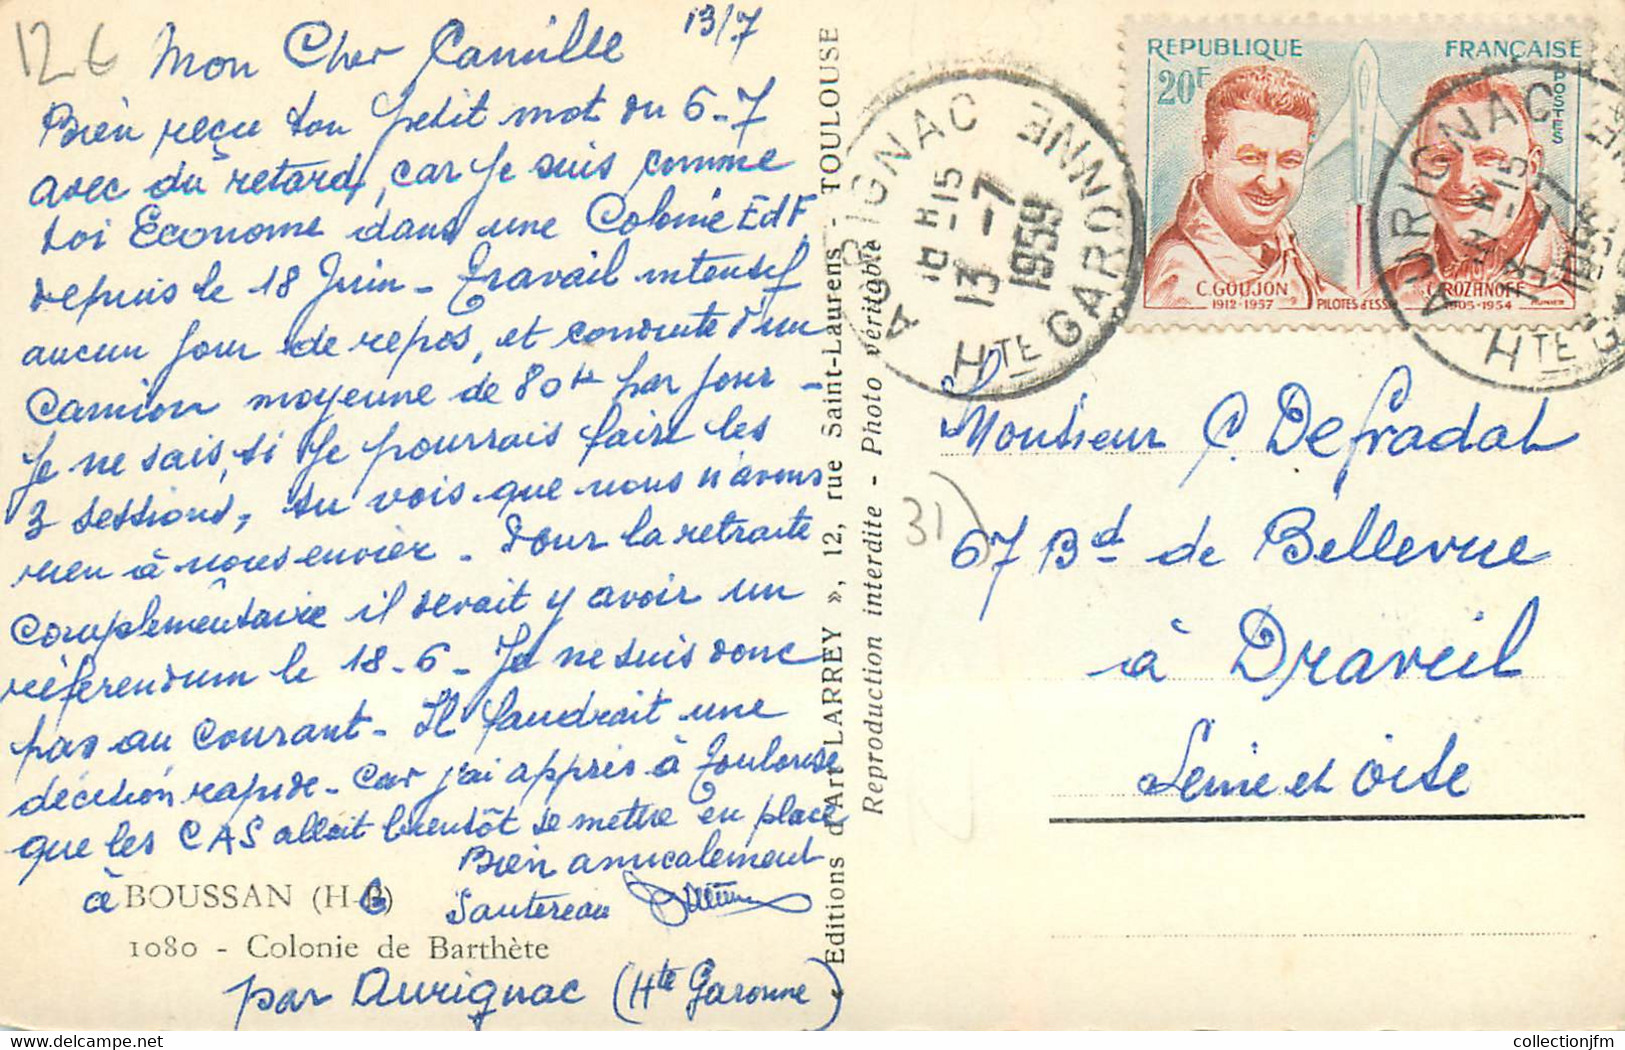 126
13/7
Mon Cher Camille
Bien reçu ton petit mot du 6-7
avec du retard, car je suis comme
toi Econome dans une Colonie EdF
depuis le 18 Juin - Travail intensif
aucun jour de repos, et conduite d'un
Camion moyenne de 80 km par jour -
Je ne sais, si je pourrais faire les
3 sessions, tu vois que nous n'avons
rien à nous envier - Pour la retraite
complémentaire il devait y avoir un
référendum le 18-6 - Je ne suis donc
pas au courant - Il faudrait une
décision rapide - Car j'ai appris à Toulouse
que les CAS allait bientôt se mettre en place
Bien amicalement
Sautereau
à BOUSSAN (H-G)
1080 - Colonie de Barthète
par Aurignac (Hte Garonne)
Editions d'Art LARREY », 12, rue Saint-Laurens - TOULOUSE
Reproduction interdite - Photo véritable
REPUBLIQUE FRANÇAISE
20F
POSTES
C. GOUJON
1912-1957
PILOTES d'ESSAI
C. ROZANOFF
1905-1954
AURIGNAC
18 H 15
13 -7
1959
Hte GARONNE
AURIGNAC
18 H 15
13 -7
1959
Hte GARONNE
31)
Monsieur C. Defradat
67 Bd de Bellevue
à Draveil
Seine et Oise
collectionjfm